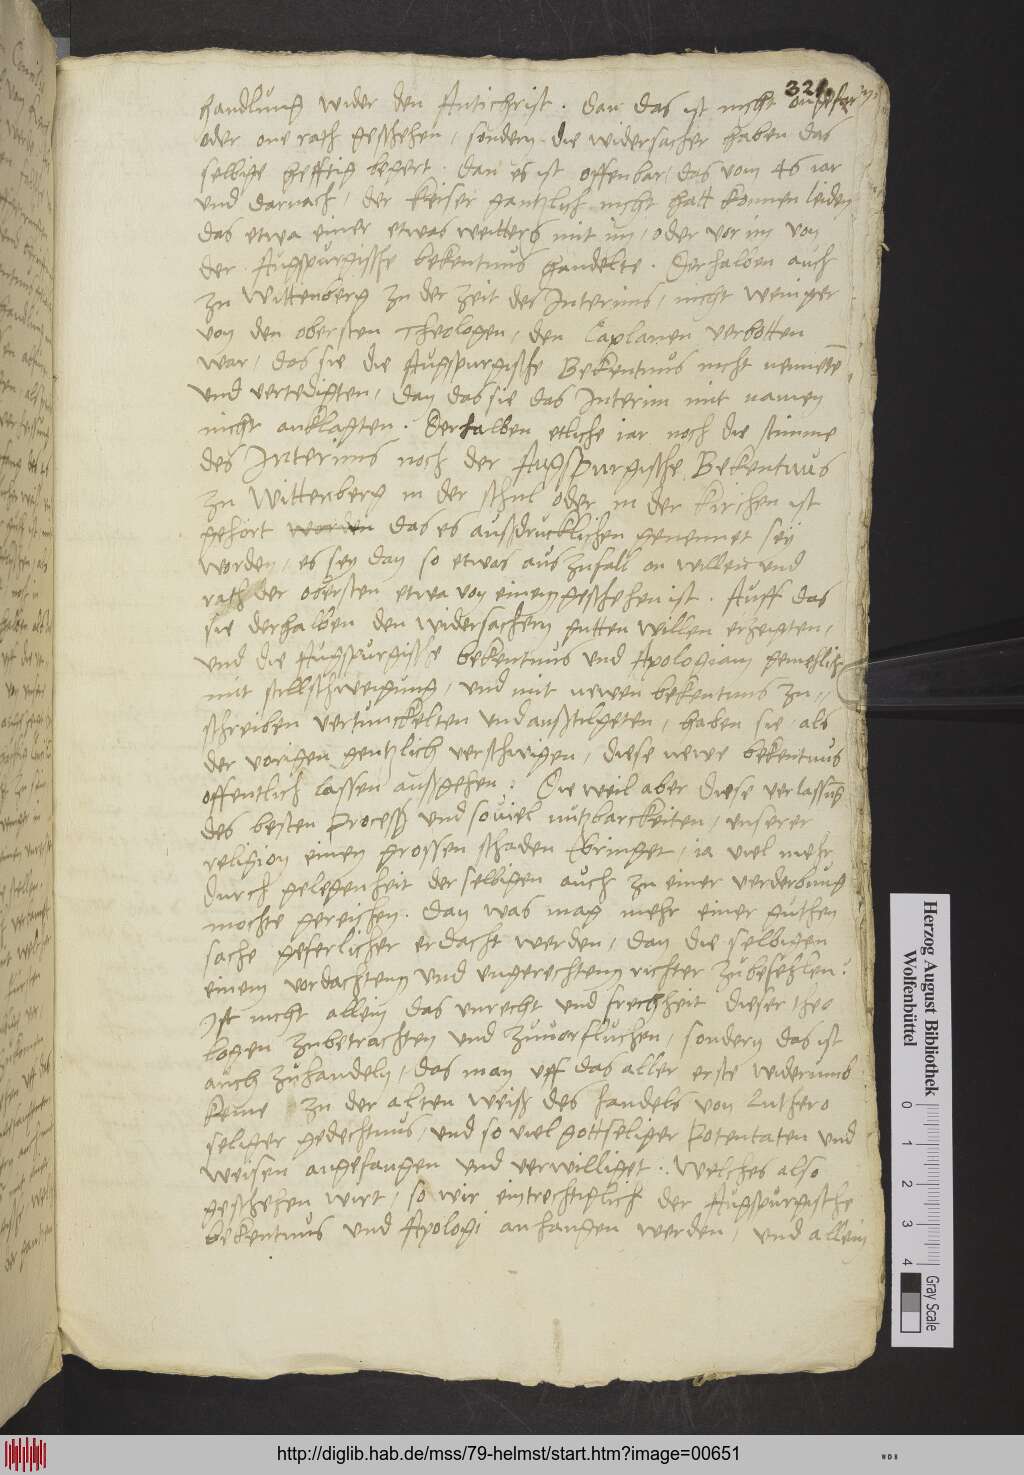 321.
handlung wider den Antichrist. Dan das ist nicht ongefar
oder one rath geschehen, sondern die widersacher haben das
selbige hefftig begert. dan es ist offenbar, das vom 46 iar
und darnach, der Keiser gantzlich nicht hatt konnen leiden
das etwa einer etwas weitters mit im, oder vor im von
der Augspurgische bekentnus handelte. Derhalben auch
zu Wittenberg zu der zeit des Interims, nicht weniger
von den obersten Theologen, den Caplanen verbotten
war, das sie die Augspurgische Bekentnus nicht nenneten
und vertedigten, dan das sie das Interim mit namen
nicht anklagten. Derhalben etliche iar noch die stimme
des Interims noch der Augspurgische Bekentnus
zu Wittenberg in der schul oder in der Kirchen ist
gehort worden das es außdrucklichen genennet sey
worden, es sey dan so etwas aus zufall on willen und
rath der obersten etwa von einem geschehen ist. Auff das
sie derhalben den widersachern gutten willen erzeigten,
und die Augspurgische bekentnus und Apologiam gemehlich
mit stillschweigung, und mit newen bekentnus zu
schreiben vertunckelten und außtilgeten, haben sie als
der vorigen gentzlich verschwigen, diese newe bekentnus
offentlich lassen außgehen. Die weil aber diese verlassung
des besten Process und soviel nutzbarckeiten, unserer
religion einen grossen schaden bringet, ia viel mehr
durch gelegenheit derselbigen auch zu einer verderbung
mochte gereichen. Dan was mag mehr einer guthen
sache geferlicher erdacht werden, dan die selbigen
einem vordachtem und ungerechtem richter zubefehlen?
Ist nicht allein das unrecht und frechheit dieser theo
logen zubetrachten und zuuorfluchen, sondern das ist
auch zuhandeln, das man uff das aller erste widerumb
keme zu der alten weiß des handels von Luthero
seliger gedechtnus, und so viel gottseliger Potentaten und
weisen angefangen und verwilliget. Welches also
geschehen wirt, so wir eintrechtiglich der Augspurgische
bekentnus und Apologi anhangen werden, und allein
Herzog August Bibliothek
Wolfenbüttel
0 1 2 3 4
Gray Scale
http://diglib.hab.de/mss/79-helmst/start.htm?image=00651